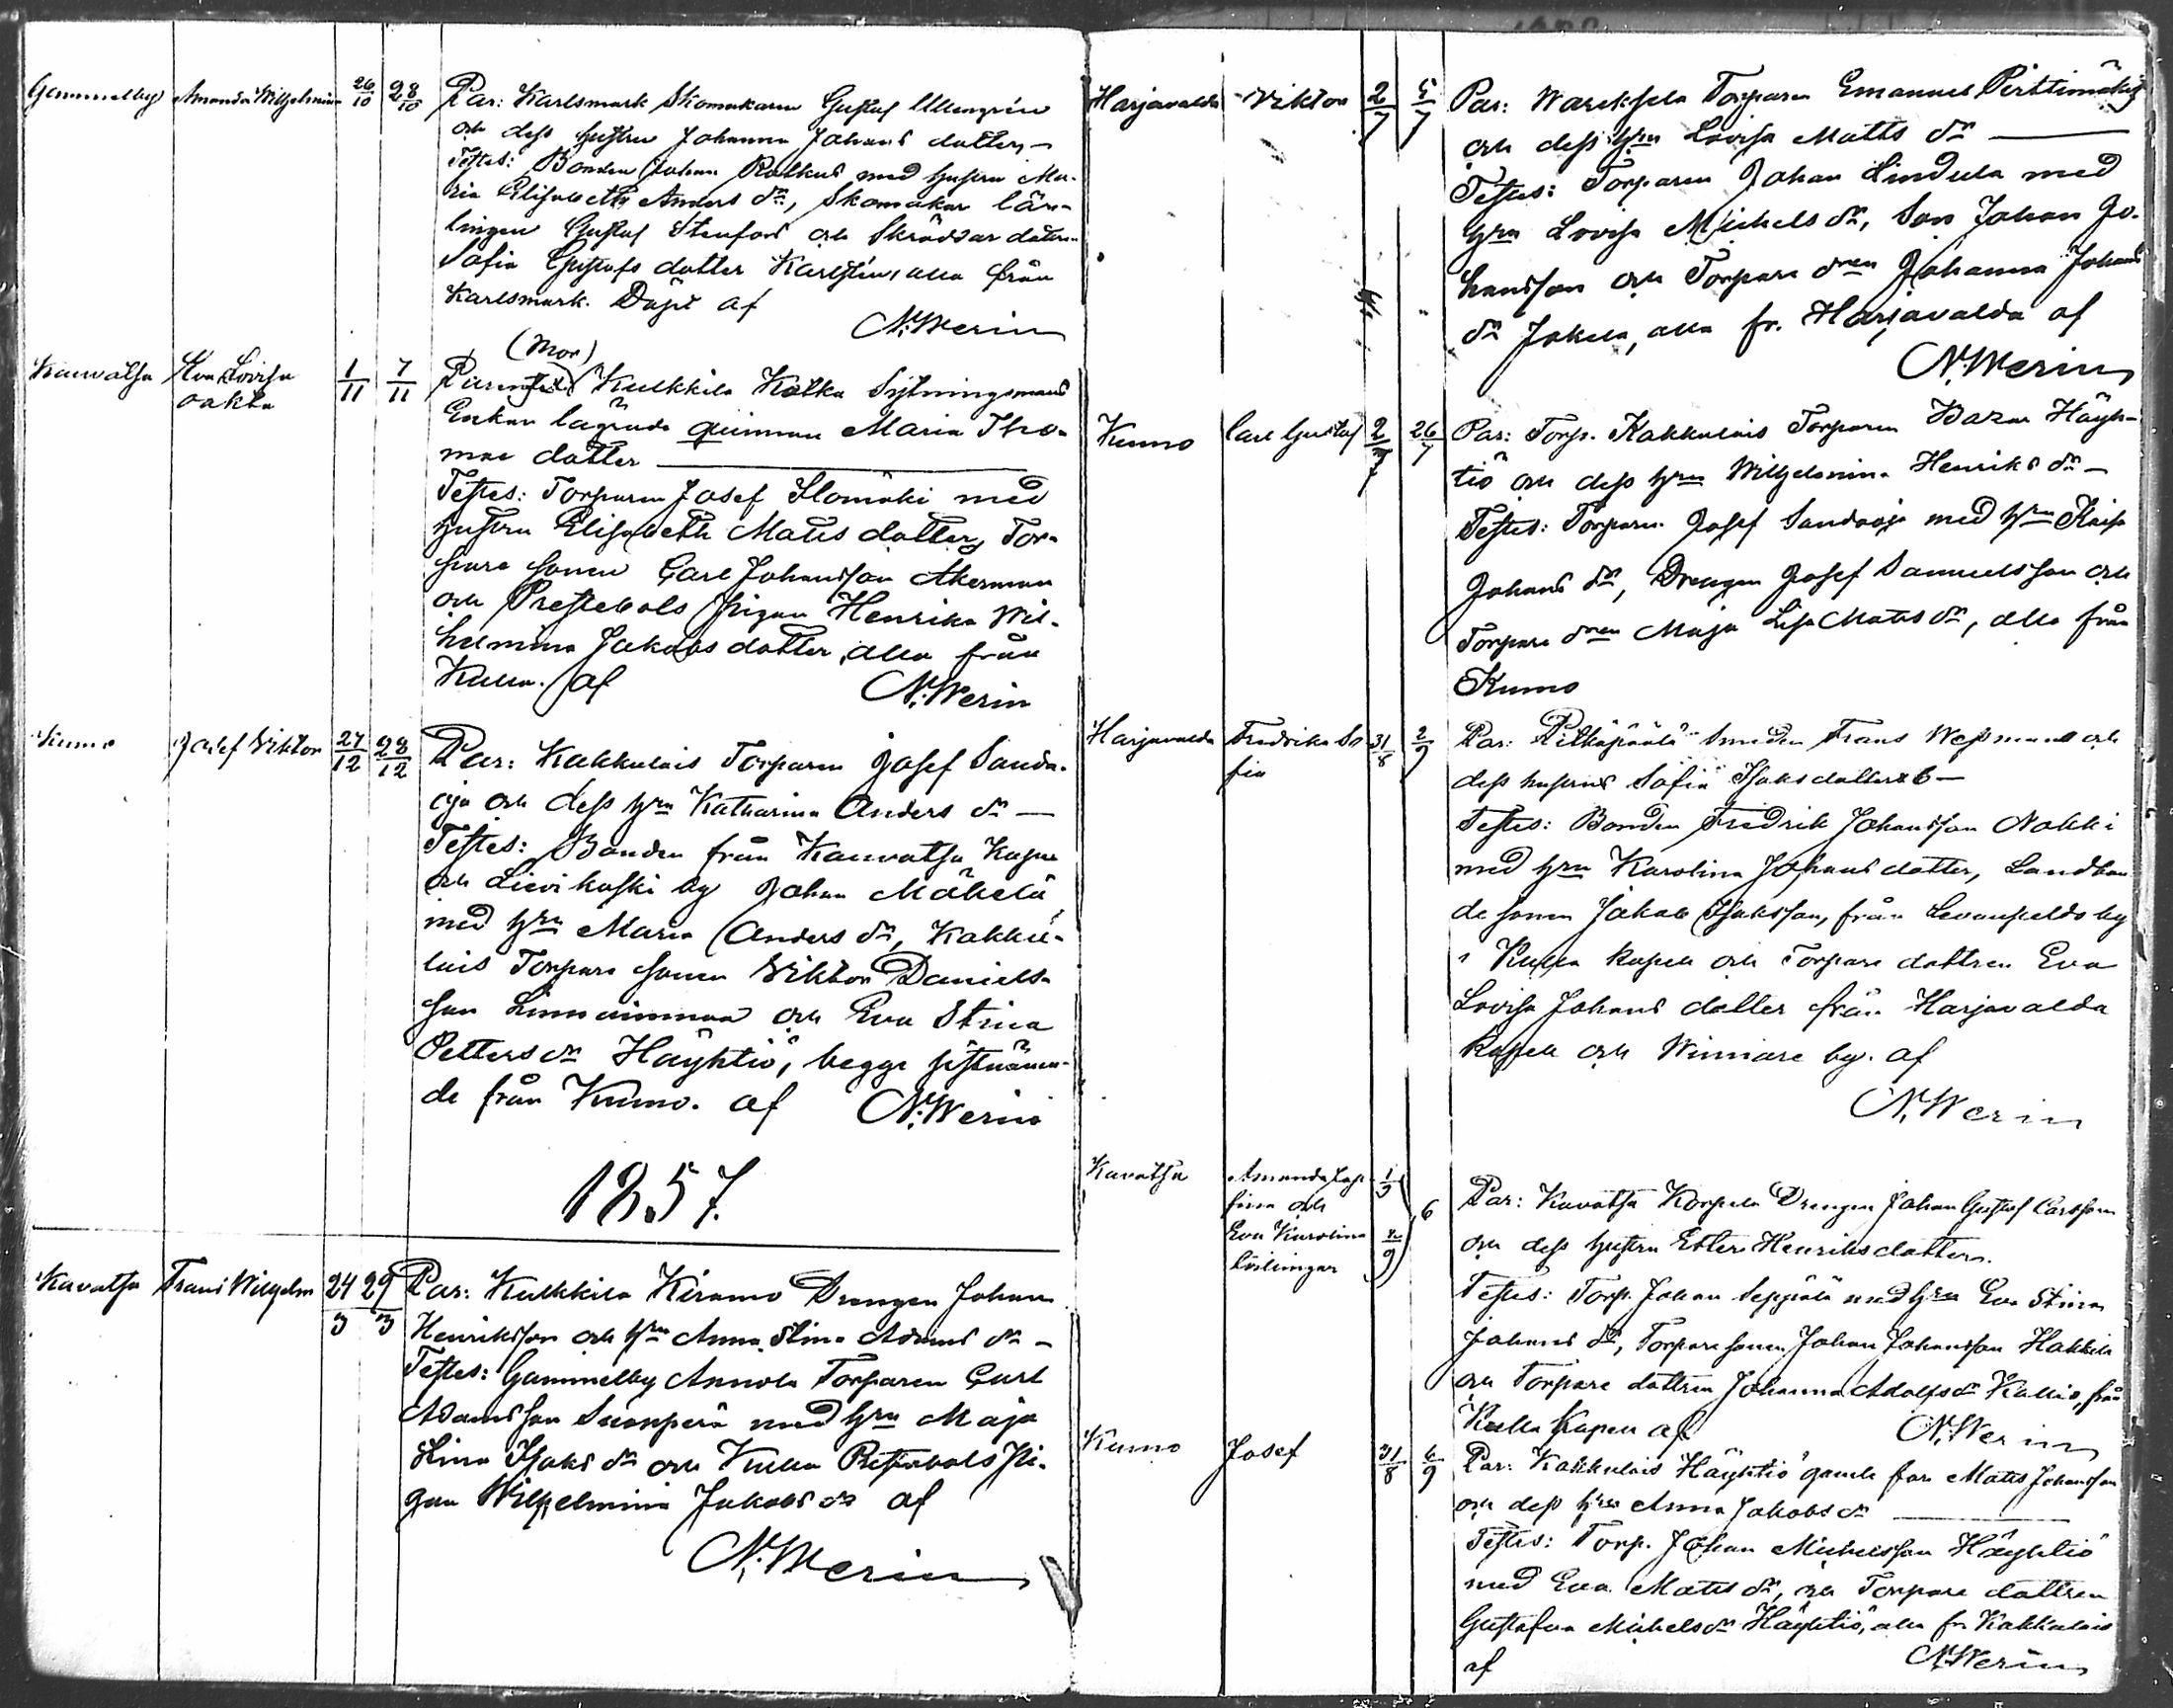 Gammelby Amanda Wilhelmina 26/10 28/10 Par: Karlsmark Skomakaren Gustaf Ullengrén
och dess hustru Johanna Johans dotter,—
Testes: Bonden Johan Rotkus med hustru Ma-
ria Elisabeth Anders dr, Skomakar lär-
lingen Gustaf Stenfors och Skräddar dottren
Sofia Gustafs dotter Karlstén, alla från
Karlsmark. Döpt af
N. Werin
Kauvatsa Eva Lovisa oäkta 1/11 7/11 (Mor)
Parentes Kulkkila Kotka Sytningsmans
Enkan lägrade qvinnan Maria Tho-
mae dotter
Testes: Torparen Josef Ilomäki med
hustru Elisabeth Matts dotter, Tor-
pare sonen Carl Johansson Akerman
och Prestebols pigan Henrika Wil-
helmina Jakobs dotter, alla från
Kulla. af
N. Werin
Kumo Josef Viktor 27/12 28/12 Par: Kakkulais Torparen Josef Sanda-
oja och dess hru Katharina Anders dr —
Testes: Bonden från Kauvatsa Kapell
och Lievikoski by Johan Mäkelä
med hru Maria Anders dr, Kakku-
lais Torpare sonen Viktor Daniels-
son Linnainmaa och Eva Stina
Petters dr Häyhtiö, begge sistnämn-
de från Kumo. af N. Werin
1857.
Kavatsa Frans Wilhelm 24/3 29/3 Par: Kulkkila Kiramo Drengen Johan
Henriksson och hru Anna Stina Adams dr —
Testes: Gammelby Annola Torparen Carl
Adamsson Suonperä med hru Maja
Stina Isaks dr och Kulla Prestebols pi-
gan Wilhelmina Jakobs dr af
N. Werin
Harjavalda Viktor 2/7 5/7 Par: Torparen Emanuel Perttimäki
och dess hru Lovisa Matts dr
Testes: Torparen Johan Lindula med
hru Lovisa Michels dr, Son Johan Jo-
hansson och Torpare dren Johanna Johans
dr Jokela, alla fr. Harjavalda af
N. Werin
Kumo Carl Gustaf 2/7 26/7 Par: Torp. Kakkulais Torparen Häyh-
tiö och dess hru Wilhelmina Henriks dr —
Testes: Torparen Josef Sandaoja med hru Kaisa
Johans dr, Drengen Josef Samuelsson och
Torpare dren Maja Lisa Matts dr, alla från
Kumo
Harjavalda Fredrika So-
fia 31/8 2/9 Par: Pitkäpäälä Smeden Frans Wessman och
dess hustru Sofia Isaksdotter —
Testes: Bonden Fredrik Johansson Nokki
med hru Karolina Johans dotter, Landbon-
de sonen Jakob Isaksson, från by
i Kulla kapell och Torpare dottren Eva
Lovisa Johans dotter från Harjavalda
kapell och Winnare by. af
N. Werin
Kavatsa Amanda Jose-
fina och
Eva Karolina
tvillingar 1/9 2/9 6 Par: Kavatsa Korpela Drengen Johan Gustaf Carlsson
och dess hustru Ester Henriksdotter.
Testes: Torp. Johan Seppälä med hru Eva Stina
Johans dr, Torpare sonen Johan Johansson Hakkila
och Torpare dottren Johanna Adolfs dr Kallio, från
Kulla Kapell af N. Werin
Kumo Josef 31/8 6/9 Par: Kakkulais Häyhtiö gamle far Matts Johansson
och dess hru Anna Jakobs dr
Testes: Torp. Johan Michelsson Häyhtiö
med Eva Matts dr, och Torpare dottren
Gustafva Michels dr Häyhtiö, alla fr. Kakkulais
af N. Werin